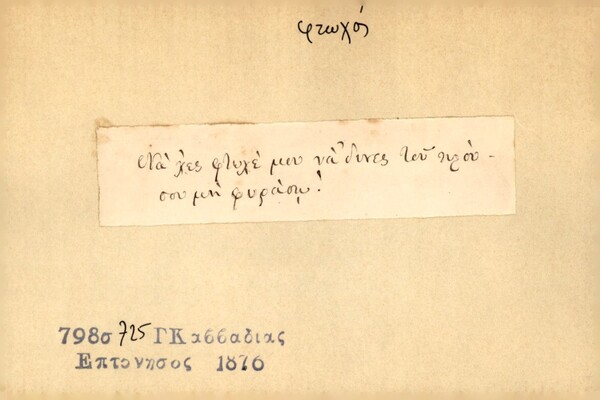 φτωχός
Νἄ χες φτωχέ μου νἄ δινες τοῦ πλού-
σου μὴ φυράσῃ!
798σ 725 ΓΚαββαδιας
Επτονησος 1876